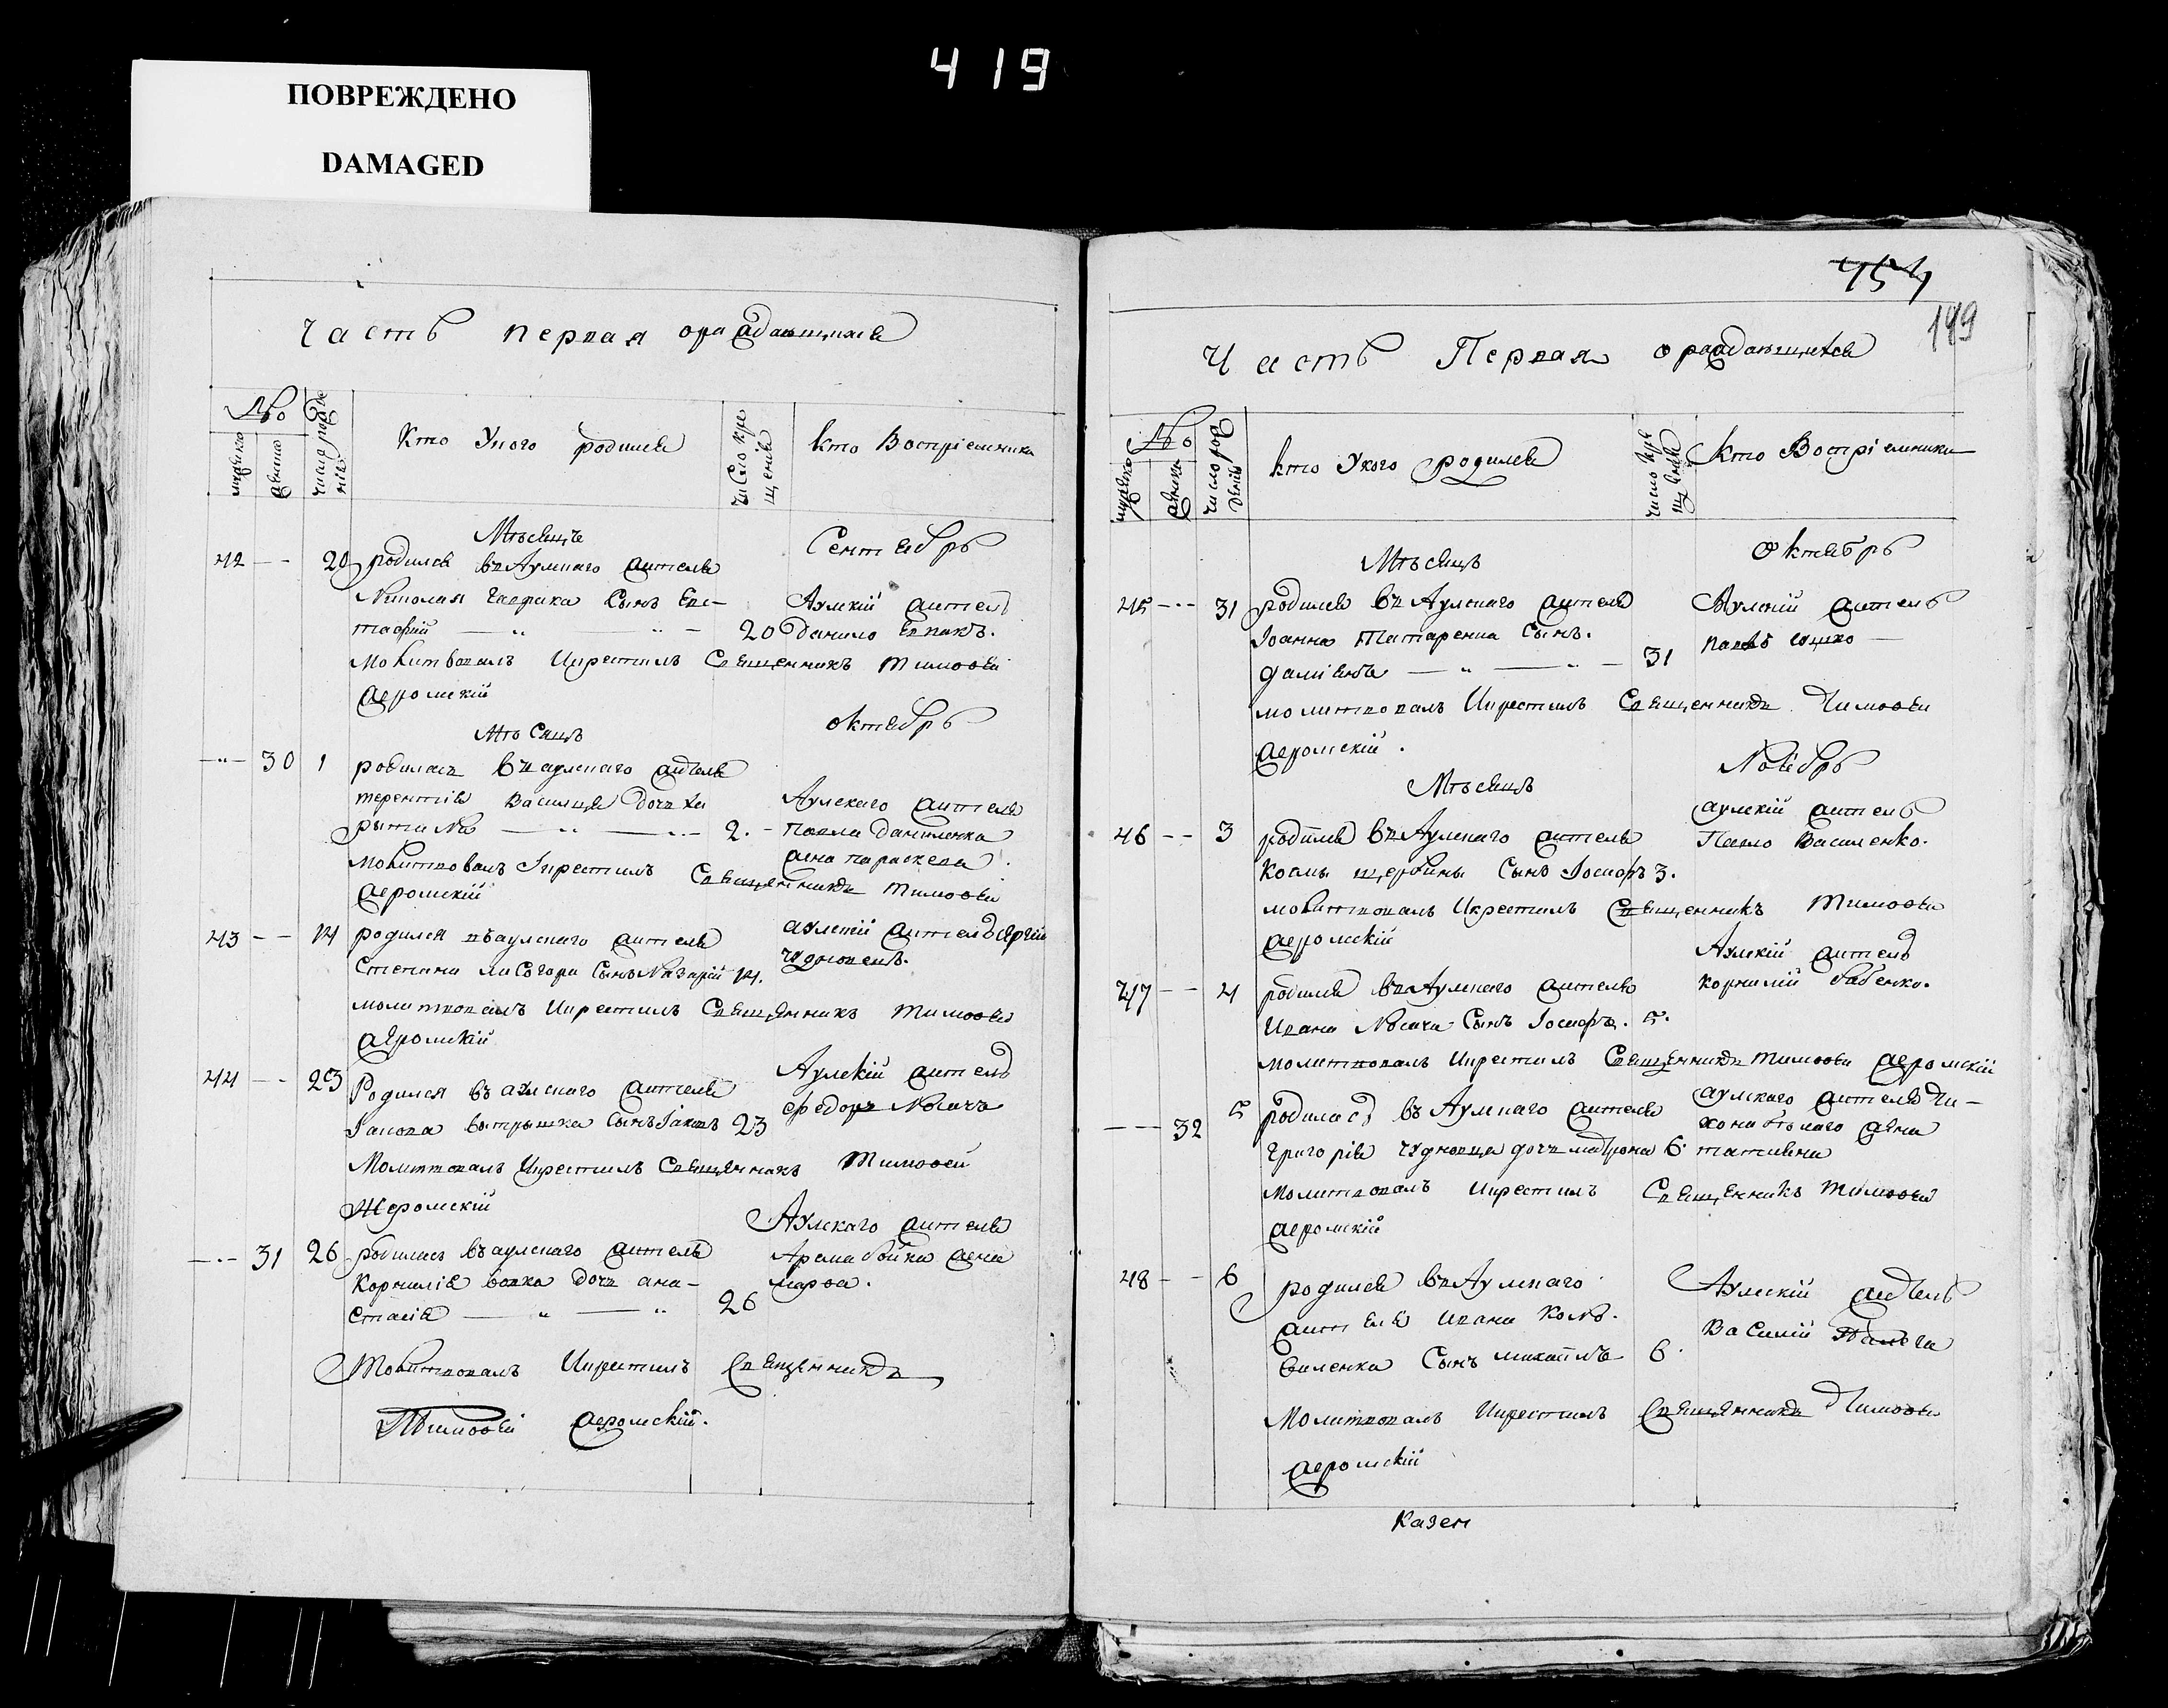 419
ПОВРЕЖДЕНО
DAMAGED
Часть первая о раждающихся
№
мужеска
женска
число рожде
нія
Кто У кого родился
число кре
щенія
кто Воспріемники
Мѣсяцъ Сентябрь
42 20 родился въ Аулскаго жителя
Николая Гаврика Сынъ Евс-
тафій 20
Аулскій житель
Данило
Молитвовалъ И крестилъ Священникъ Тимоѳей
Жеромскій
Мѣсяцъ октябрь
30 1 родилась въ аулскаго жителя
терентія Василця дочь Ха
рытина 2.
Аулскаго жителя
Павла Даниленка
жена параскева.
Молитвовалъ И крестилъ Священникъ Тимоѳей
Жеромскій
43 14 родился въ аулскаго жителя
Степана лисогора Сынъ Назарій 14.
аулскій житель Сергій
чудновецъ.
молитвовалъ И крестилъ Священникъ Тимоѳей
Жеромскій
44 23 Родился въ аулскаго жителя
Іакова Сынъ Іаковъ 23
Аулскій житель
федоръ Носачъ
Молитвовалъ И крестилъ Священникъ Тимоѳей
Жеромскій
31 26 родилась въ аулскаго жителя
Корнилія вовка дочь ана-
стасія 26
Аулскаго жителя
бойка жена
марѳа.
Молитвовалъ И крестилъ Священникъ
Тимоѳей Жеромскій.
454
149
Часть Первая о раждающихся
№
мужеска
женска
число рож
денія
кто У кого родился
число кре
щенія
Кто Воспріемники
Мѣсяцъ октябрь
45 31 родился въ Аулскаго жителя
Іоанна Татаренка Сынъ.
даміянъ 31
Аулскій житель
павелъ
молитвовалъ И крестилъ Священникъ Тимоѳей
Жеромскій.
Мѣсяцъ Ноябрь
46 3 родился въ Аулскаго жителя
Козмы щербины Сынъ Іосифъ 3.
аулскій житель
Павло Василенко.
молитвовалъ И крестилъ Священникъ Тимоѳей
Жеромскій
47 4 родился въ Аулскаго жителя
Ивана Носача Сынъ Іосифъ. 5.
Аулскій житель
корнилій бабенко.
молитвовалъ И крестилъ Священникъ Тимоѳей Жеромскій
32 5 родилась въ Аулскаго жителя
Григорія чудновца дочь матрона 6
аулскаго жителя Ти-
хона жена
татияна
Молитвовалъ И крестилъ Священникъ Тимоѳей
Жеромскій
48 6 родился въ Аулскаго
жителя Ивана
Сынъ михаилъ 6.
Аулскій житель
Василій
Молитвовалъ И крестилъ Священникъ Тимоѳей
Жеромскій
Казен